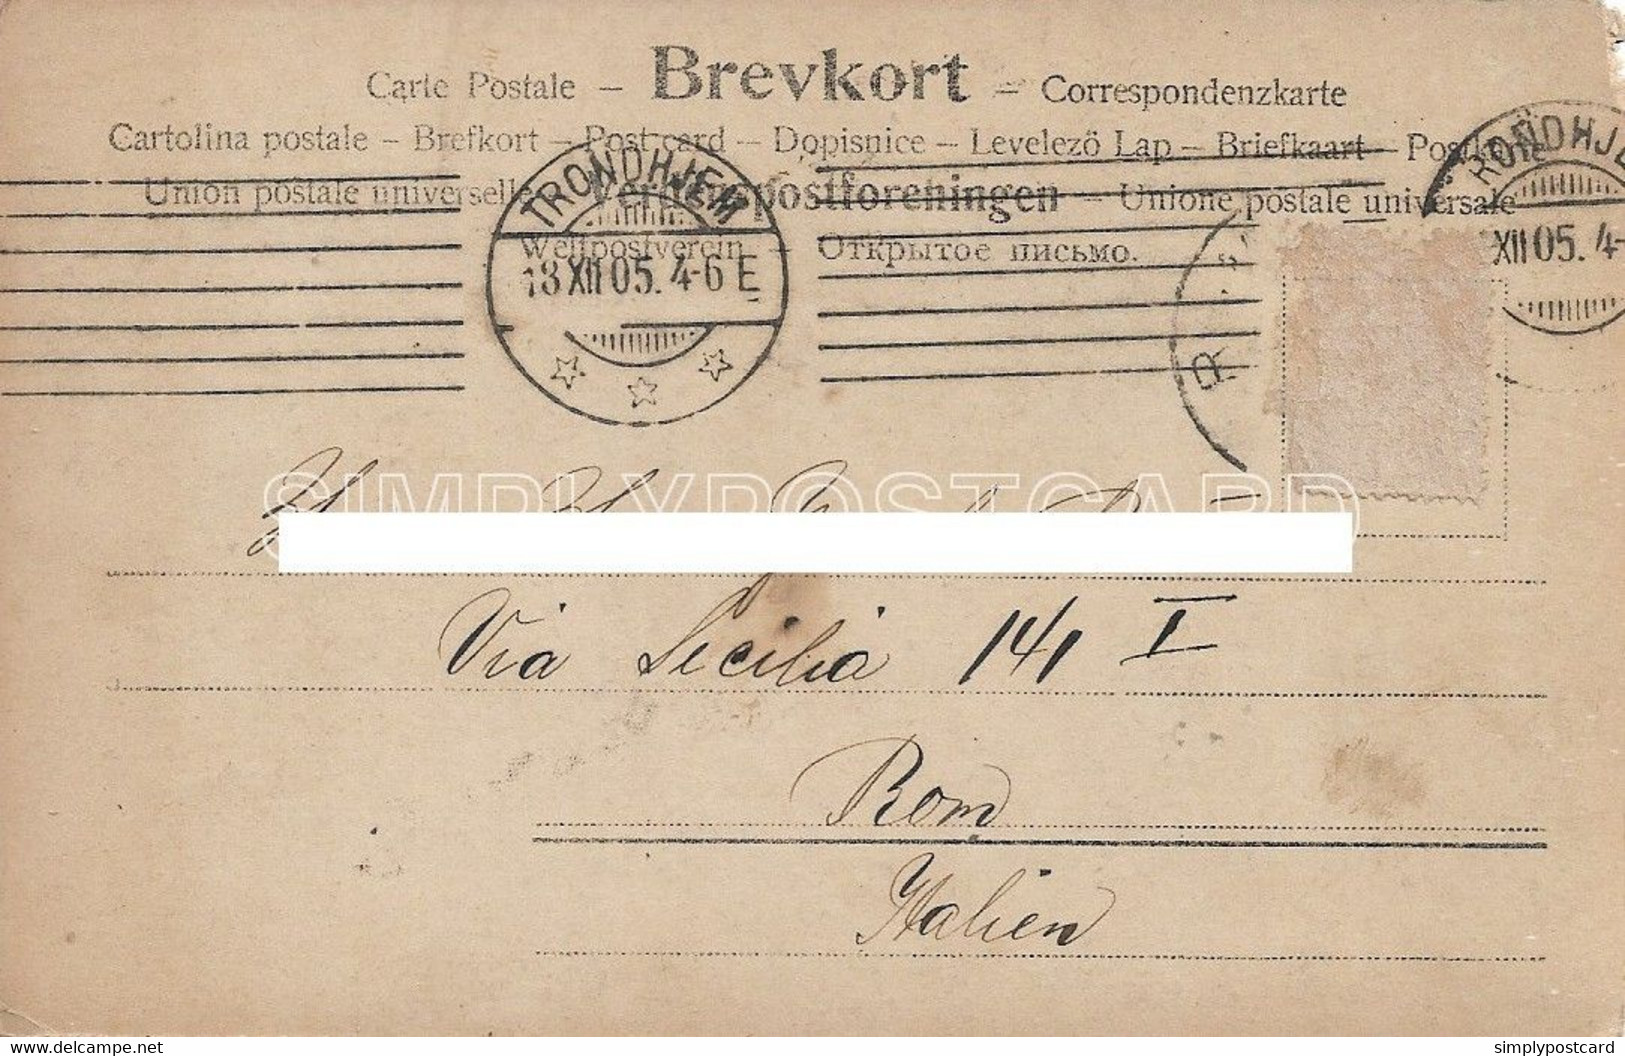 Carte Postale – Brevkort – Correspondenzkarte
Cartolina postale – Brefkort – Post card – Dopisnice – Levelező Lap – Briefkaart – Postkarte
Union postale universelle – Verdenspostforeningen – Unione postale universale
Weltpostverein – Открытое письмо.
TRONDHJEM
18 XII 05. 4-6 E
RONDHJE
XII 05. 4-
R
SIMPLYPOSTCARD
Via Secilia 141 I
Rom
Italien
www.delcampe.net
simplypostcard